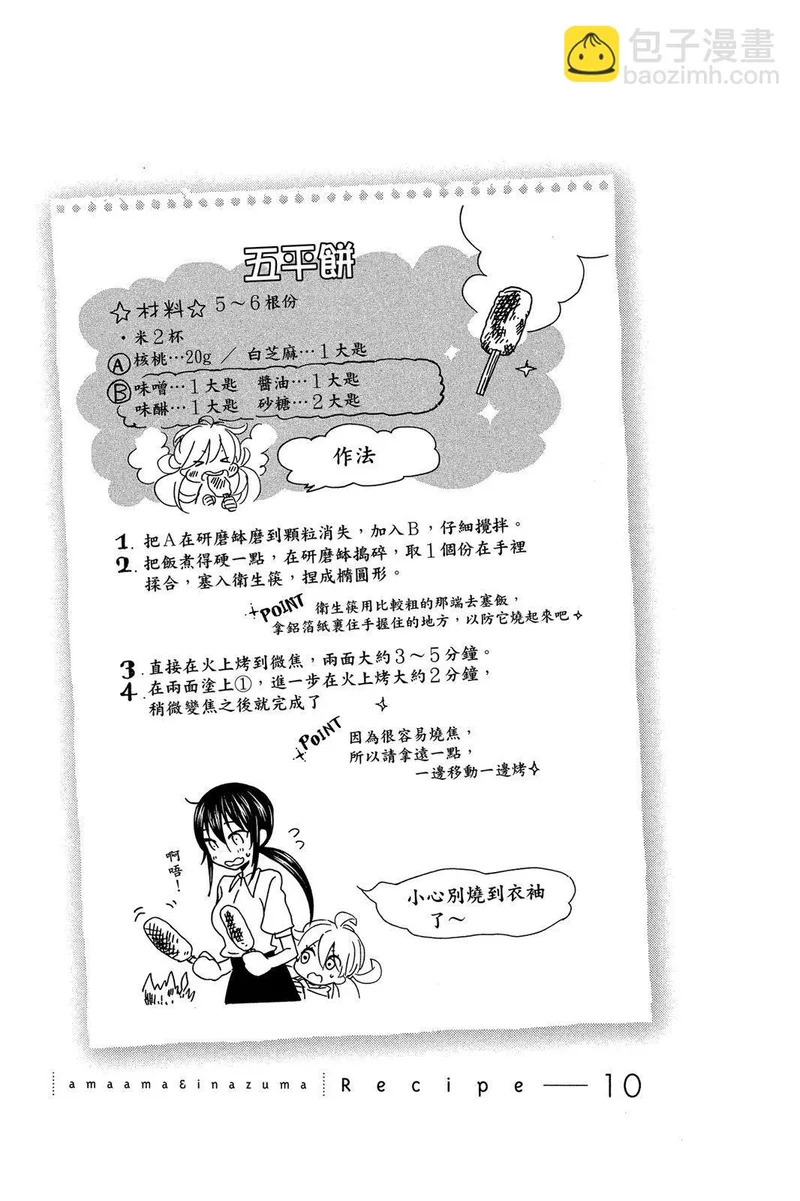 包子漫畫
baozimh.com
五平餅
☆材料☆ 5～6根份
・米2杯
Ⓐ核桃…20g ／ 白芝麻…1大匙
Ⓑ味噌…1大匙 醬油…1大匙
味醂…1大匙 砂糖…2大匙
作法
1. 把A在研磨缽磨到顆粒消失，加入B，仔細攪拌。
2. 把飯煮得硬一點，在研磨缽搗碎，取1個份在手裡
揉合，塞入衛生筷，捏成橢圓形。
POINT 衛生筷用比較粗的那端去塞飯，
拿鋁箔紙裹住手握住的地方，以防它燒起來吧
3. 直接在火上烤到微焦，兩面大約3～5分鐘。
4. 在兩面塗上①，進一步在火上烤大約2分鐘，
稍微變焦之後就完成了
POINT 因為很容易燒焦，
所以請拿遠一點，
一邊移動一邊烤
啊唔！
小心別燒到衣袖
了～
amaama&inazuma Recipe — 10